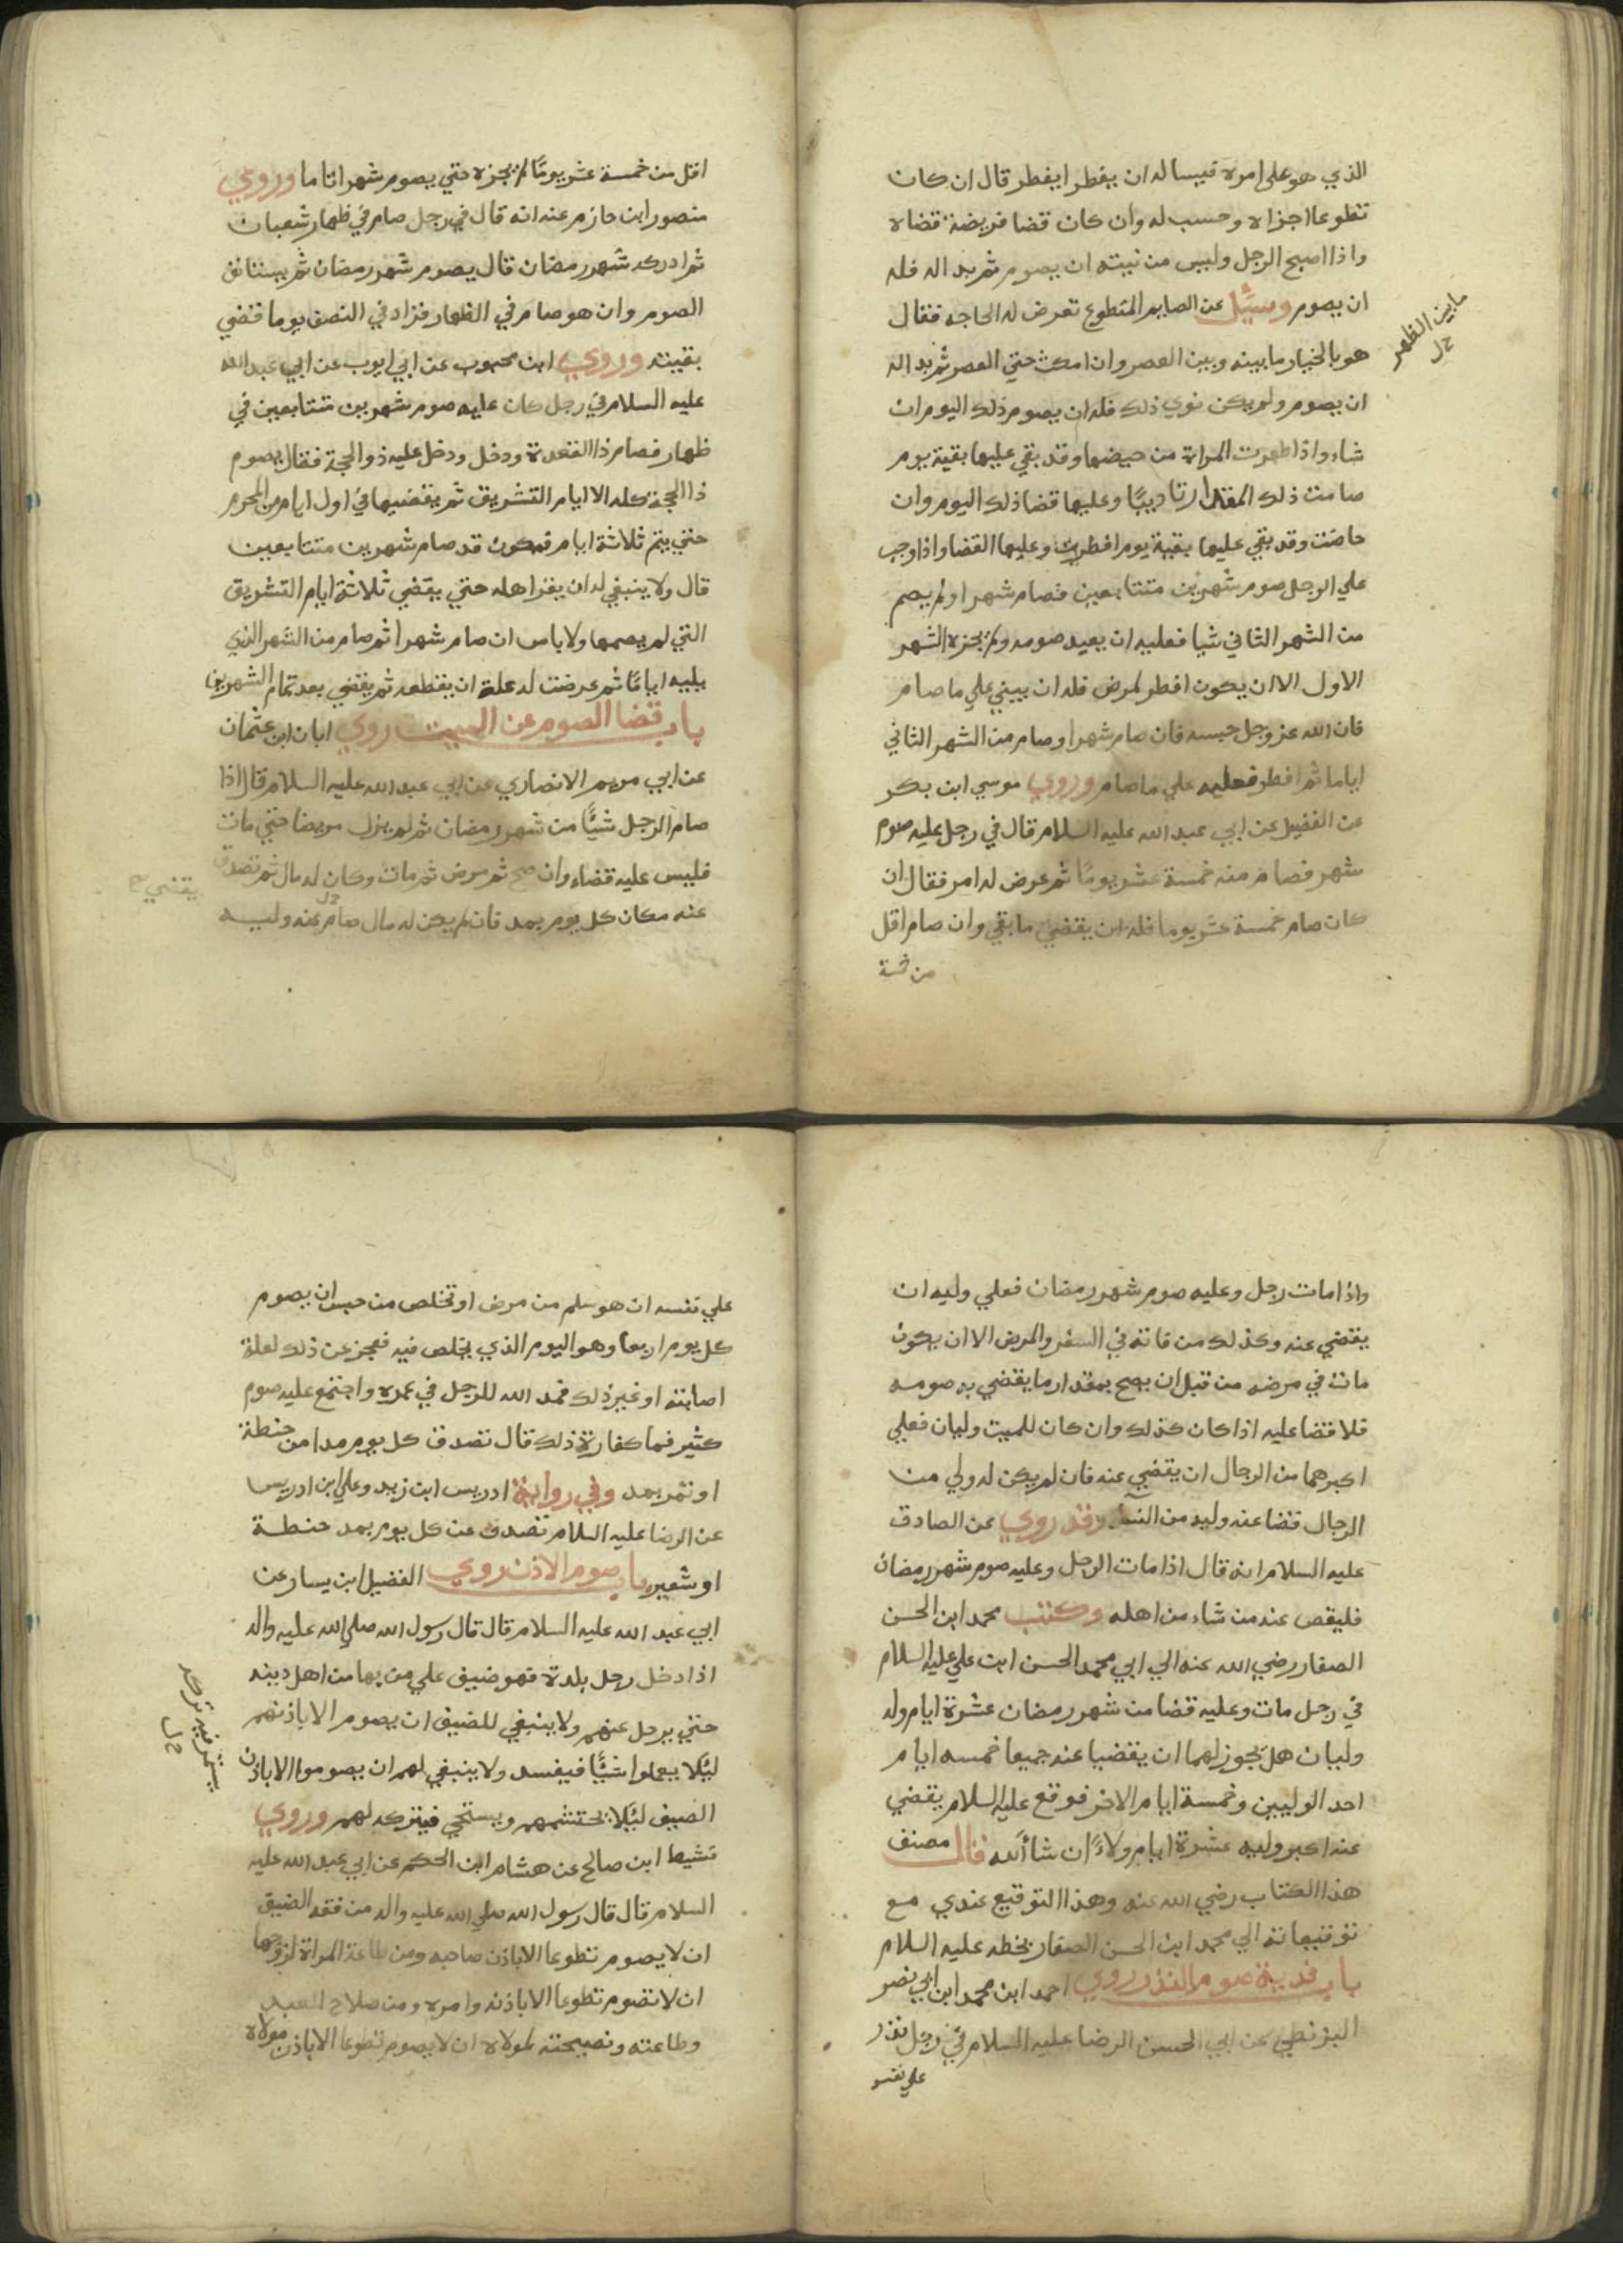 الذي هو على امره فيساله ان يفطر ايفطر قال ان كان
تطوعا اجزاه وحسب له وان كان قضا فريضة قضاه
واذا اصبح الرجل وليس من نيته ان يصوم ثم بد اله فله
ان يصوم وسئل عن الصايم المتطوع تعرض له الحاجه فقال
هو بالخيار ما بينه وبين العصر وان امكث حتي العصر ثم بد اله
ان يصوم ولم يكن نوي ذلك فله ان يصوم ذلك اليوم ان
شاء واذا طهرت المراة من حيضها وقد بقي عليها بقية يوم
صامت ذلك المقدار تاديبًا وعليها قضا ذلك اليوم وان
حاضت وقد بقي عليها بقية يوم افطرت وعليها القضا واذا وجب
علي الرجل صوم شهرين متتابعين فصام شهرا ولم يصم
من الشهر الثاني شيا فعليه ان يعيد صومه ولم يجزه الشهر
الاول الا ان يكون افطر لمرض فله ان يبني علي ما صام
فان الله عز وجل حبسه فان صام شهرا وصام من الشهر الثاني
اياما ثم افطر فعليه علي ما صام وروي موسي ابن بكر
عن الفضيل عن ابي عبد الله عليه السلام قال في رجل عليه صوم
شهر فصام منه خمسة عشر يومًا ثم عرض له امر فقال ان
كان صام خمسة عشر يوما فله ان يقضي ما بقي وان صام اقل
من خمسة
ما بين الظهر
خ ل
اقل من خمسة عشر يومًا لم يجزه حتي يصوم شهرا تاما وروي
منصور ابن حازم عنه انه قال في رجل صام في ظهار شعبان
ثم ادركه شهر رمضان قال يصوم شهر رمضان ثم يستانف
الصوم وان هو صام في الظهار فزاد في النصف يوما قضي
بقيته وروي ابن محبوب عن ابي ايوب عن ابي عبد الله
عليه السلام في رجل كان عليه صوم شهرين متتابعين في
ظهار فصام ذا القعدة ودخل ودخل عليه ذو الحجة فقال يصوم
ذا الحجة كله الا ايام التشريق ثم يقضيها في اول ايام من المحرم
حتي يتم ثلاثة ايام فيكون قد صام شهرين متتابعين
قال ولا ينبغي له ان يقرا هله حتي يقضي ثلاثة ايام التشريق
التي لم يصمها ولا باس ان صام شهرا ثم صام من الشهر الذي
يليه ايامًا ثم عرضت له علة ان يقطعه ثم يقضي بعد تمام الشهرين
باب قضا الصوم عن الميت روي ابان ابن عثمان
عن ابي مريم الانصاري عن ابي عبد الله عليه السلام قال اذا
صام الرجل شيًا من شهر رمضان ثم لم يزل مريضا حتي مات
فليس عليه قضاء وان صح ثم مرض ثم مات وكان له مال ثم تصدق
عنه مكان كل يوم بمد فان لم يكن له مال صام عنه وليه
يقضي خ
واذا مات رجل وعليه صوم شهر رمضان فعلي وليه ان
يقضي عنه وكذلك من فاته في السفر والمرض الا ان يكون
مات في مرضه من قبل ان يصح بمقدار ما يقضي به صومه
فلا قضا عليه اذا كان كذلك وان كان للميت وليان فعلي
اكبرهما من الرجال ان يقضي عنه فان لم يكن له ولي من
الرجال قضا عنه وليه من النسا وقد روي عن الصادق
عليه السلام انه قال اذا مات الرجل وعليه صوم شهر رمضان
فليقض عنه من شاء من اهله وكتب محمد ابن الحسن
الصفار رضي الله عنه الي ابي محمد الحسن ابن علي عليه السلام
في رجل مات وعليه قضا من شهر رمضان عشرة ايام وله
وليان هل يجوز لهما ان يقضيا عنه جميعا خمسه ايام
احد الوليين وخمسة ايام الاخر فوقع عليه السلام يقضي
عنه اكبر وليه عشرة ايام ولاءً ان شا الله قال مصنف
هذا الكتاب رضي الله عنه وهذا التوقيع عندي مع
توقيعاته الي محمد ابن الحسن الصفار بخطه عليه السلام
باب فدية صوم النذر روي احمد ابن محمد ابن ابي نصر
البزنطي عن ابي الحسن الرضا عليه السلام في رجل نذر
علي نفسه
علي نفسه ان هو سلم من مرض او تخلص من حبس ان يصوم
كل يوم اربعا وهو اليوم الذي يخلص فيه فعجز عن ذلك لعلة
اصابته او غير ذلك فمد الله للرجل في عمره واجتمع عليه صوم
كثير فما كفارة ذلك قال تصدق كل يوم مدا من حنطة
او تمر بمد وفي رواية ادريس ابن زيد وعلي ابن ادريس
عن الرضا عليه السلام تصدق عن كل يوم بمد حنطة
او شعير باب صوم الاذن روي الفضيل ابن يسار عن
ابي عبد الله عليه السلام قال قال رسول الله صلي الله عليه واله
اذا دخل رجل بلدة فهو ضيف علي من بها من اهل دينه
حتي يرحل عنهم ولا ينبغي للضيف ان يصوم الا باذنهم
ليلا يعملوا شيًا فيفسد ولا ينبغي لهم ان يصوموا الا باذن
الضيف ليلا يحتشمهم ويستحي فيتركه لهم وروي
نشيط ابن صالح عن هشام ابن الحكم عن ابي عبد الله عليه
السلام قال قال رسول الله صلي الله عليه واله من فقه الضيف
ان لا يصوم تطوعا الا باذن صاحبه ومن طاعة المراة لزوجها
ان لا تصوم تطوعا الا باذنه وامره ومن صلاح العبد
وطاعته ونصيحته لمولاه ان لا يصوم تطوعا الا باذن مولاه
خ ل